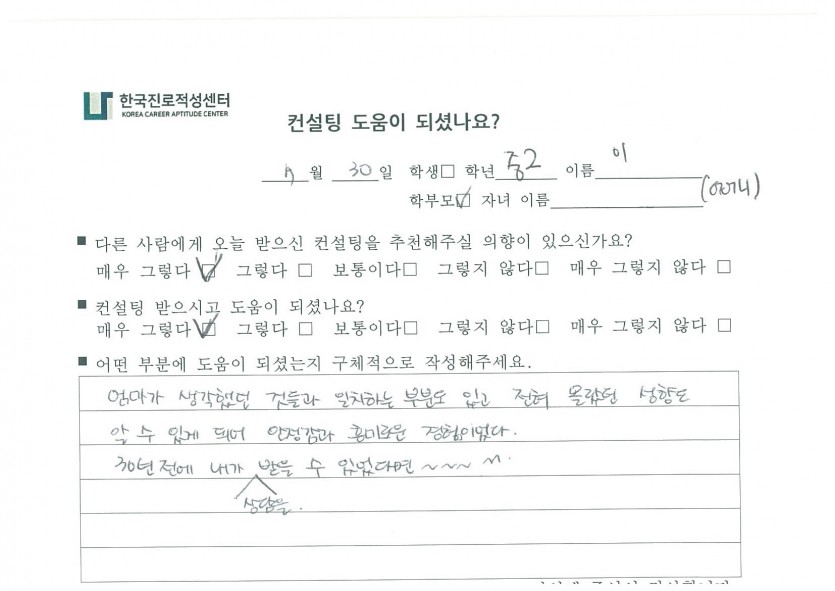 한국진로적성센터
KOREA CAREER APTITUDE CENTER
컨설팅 도움이 되셨나요?
월 30 일 학생□ 학년 중2 이름 이
학부모☑ 자녀 이름 (어머니)
■ 다른 사람에게 오늘 받으신 컨설팅을 추천해주실 의향이 있으신가요?
매우 그렇다 ☑ 그렇다 □ 보통이다□ 그렇지 않다□ 매우 그렇지 않다 □
■ 컨설팅 받으시고 도움이 되셨나요?
매우 그렇다 ☑ 그렇다 □ 보통이다□ 그렇지 않다□ 매우 그렇지 않다 □
■ 어떤 부분에 도움이 되셨는지 구체적으로 작성해주세요.
엄마가 생각했던 것들과 일치하는 부분도 있고 전혀 몰랐던 성향도
알 수 있게 되어 안정감과 흥미로운 경험이었다.
30년 전에 내가 받을 수 있었다면 ~~~ ^^.
상담을.